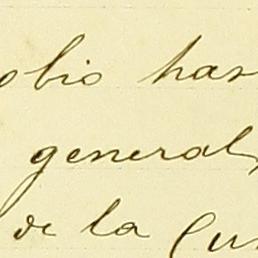 obio has
general,
de la Cu